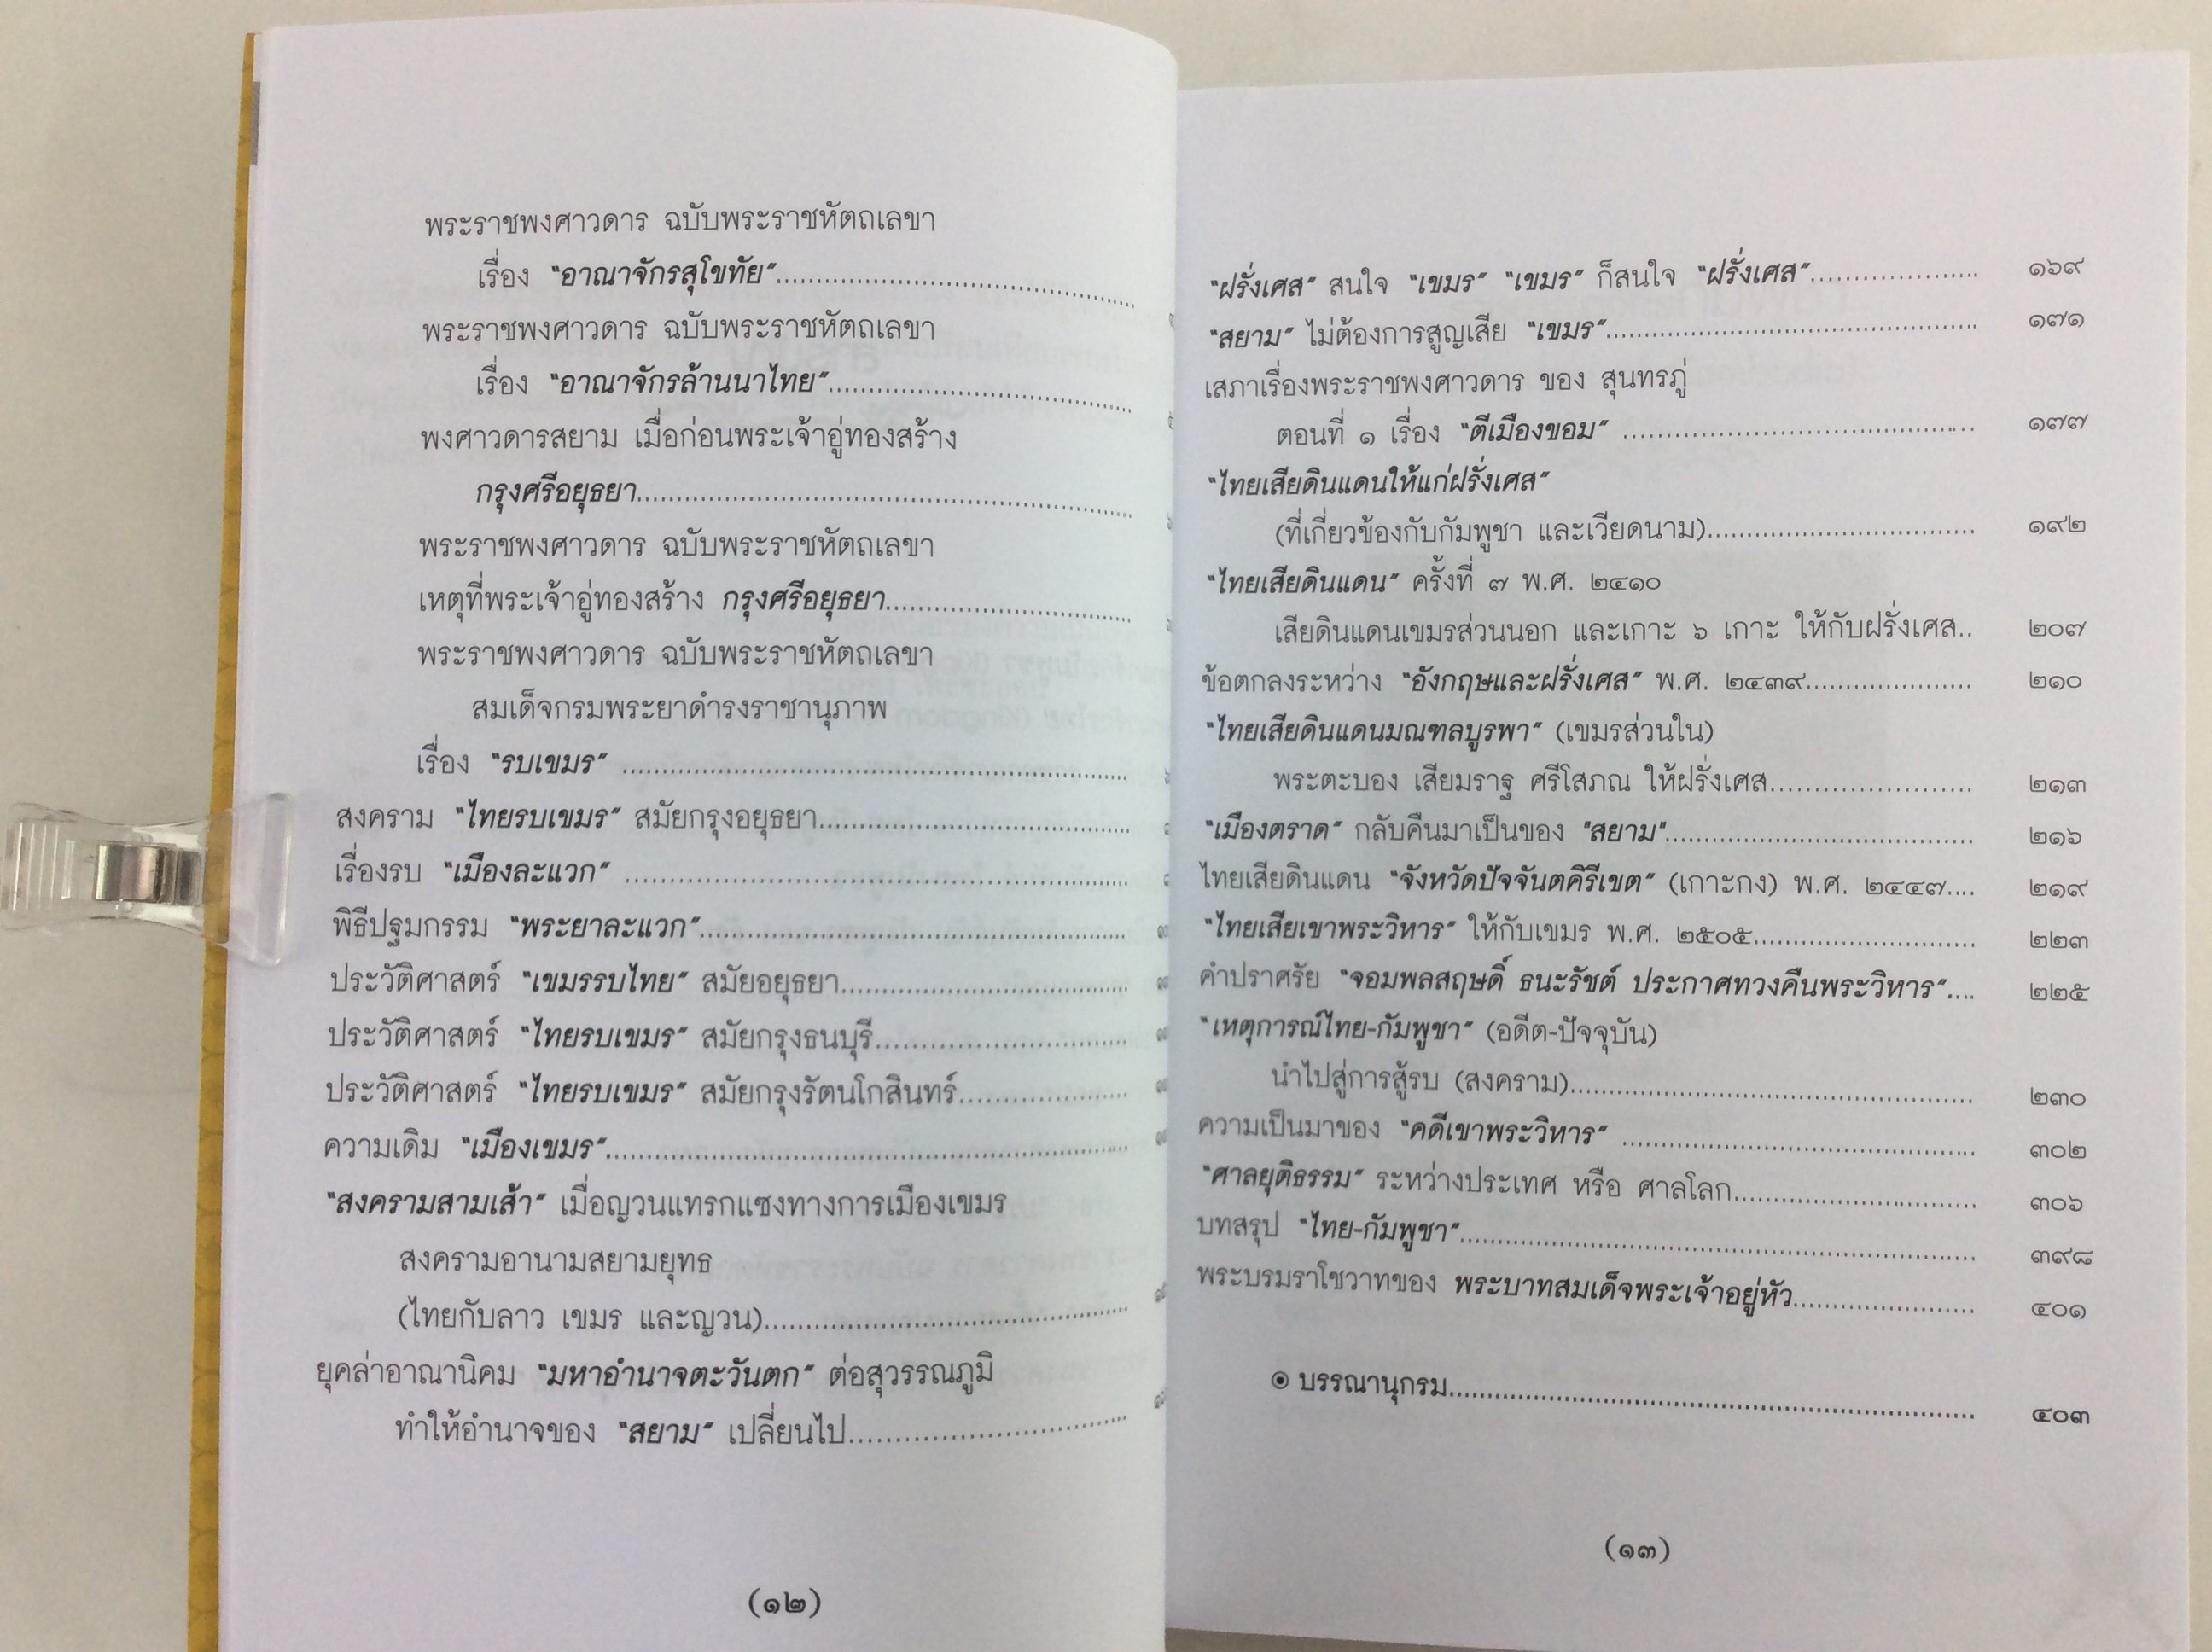 พระราชพงศาวดาร ฉบับพระราชหัตถเลขา
เรื่อง "อาณาจักรสุโขทัย"
พระราชพงศาวดาร ฉบับพระราชหัตถเลขา
เรื่อง "อาณาจักรล้านนาไทย"
พงศาวดารสยาม เมื่อก่อนพระเจ้าอู่ทองสร้าง
กรุงศรีอยุธยา
พระราชพงศาวดาร ฉบับพระราชหัตถเลขา
เหตุที่พระเจ้าอู่ทองสร้าง กรุงศรีอยุธยา
พระราชพงศาวดาร ฉบับพระราชหัตถเลขา
สมเด็จกรมพระยาดำรงราชานุภาพ
เรื่อง "รบเขมร"
สงคราม "ไทยรบเขมร" สมัยกรุงอยุธยา
เรื่องรบ "เมืองละแวก"
พิธีปฐมกรรม "พระยาละแวก"
ประวัติศาสตร์ "เขมรรบไทย" สมัยอยุธยา
ประวัติศาสตร์ "ไทยรบเขมร" สมัยกรุงธนบุรี
ประวัติศาสตร์ "ไทยรบเขมร" สมัยกรุงรัตนโกสินทร์
ความเดิม "เมืองเขมร"
"สงครามสามเส้า" เมื่อญวนแทรกแซงทางการเมืองเขมร
สงครามอานามสยามยุทธ
(ไทยกับลาว เขมร และญวน)
ยุคล่าอาณานิคม "มหาอำนาจตะวันตก" ต่อสุวรรณภูมิ
ทำให้อำนาจของ "สยาม" เปลี่ยนไป
(๑๒)
"ฝรั่งเศส" สนใจ "เขมร" "เขมร" ก็สนใจ "ฝรั่งเศส" ๑๖๙
"สยาม" ไม่ต้องการสูญเสีย "เขมร" ๑๗๑
เสภาเรื่องพระราชพงศาวดาร ของ สุนทรภู่
ตอนที่ ๑ เรื่อง "ตีเมืองขอม" ๑๗๗
"ไทยเสียดินแดนให้แก่ฝรั่งเศส"
(ที่เกี่ยวข้องกับกัมพูชา และเวียดนาม) ๑๙๒
"ไทยเสียดินแดน" ครั้งที่ ๗ พ.ศ. ๒๔๑๐
เสียดินแดนเขมรส่วนนอก และเกาะ ๖ เกาะ ให้กับฝรั่งเศส.. ๒๐๗
ข้อตกลงระหว่าง "อังกฤษและฝรั่งเศส" พ.ศ. ๒๔๓๙ ๒๑๐
"ไทยเสียดินแดนมณฑลบูรพา" (เขมรส่วนใน)
พระตะบอง เสียมราฐ ศรีโสภณ ให้ฝรั่งเศส ๒๑๓
"เมืองตราด" กลับคืนมาเป็นของ "สยาม" ๒๑๖
ไทยเสียดินแดน "จังหวัดปัจจันตคิรีเขต" (เกาะกง) พ.ศ. ๒๔๔๗.... ๒๑๙
"ไทยเสียเขาพระวิหาร" ให้กับเขมร พ.ศ. ๒๕๐๕ ๒๒๓
คำปราศรัย "จอมพลสฤษดิ์ ธนะรัชต์ ประกาศทวงคืนพระวิหาร".... ๒๒๕
"เหตุการณ์ไทย-กัมพูชา" (อดีต-ปัจจุบัน)
นำไปสู่การสู้รบ (สงคราม) ๒๓๐
ความเป็นมาของ "คดีเขาพระวิหาร" ๓๐๒
"ศาลยุติธรรม" ระหว่างประเทศ หรือ ศาลโลก ๓๐๖
บทสรุป "ไทย-กัมพูชา" ๓๙๘
พระบรมราโชวาทของ พระบาทสมเด็จพระเจ้าอยู่หัว ๔๐๑
๏ บรรณานุกรม ๔๐๓
(๑๓)